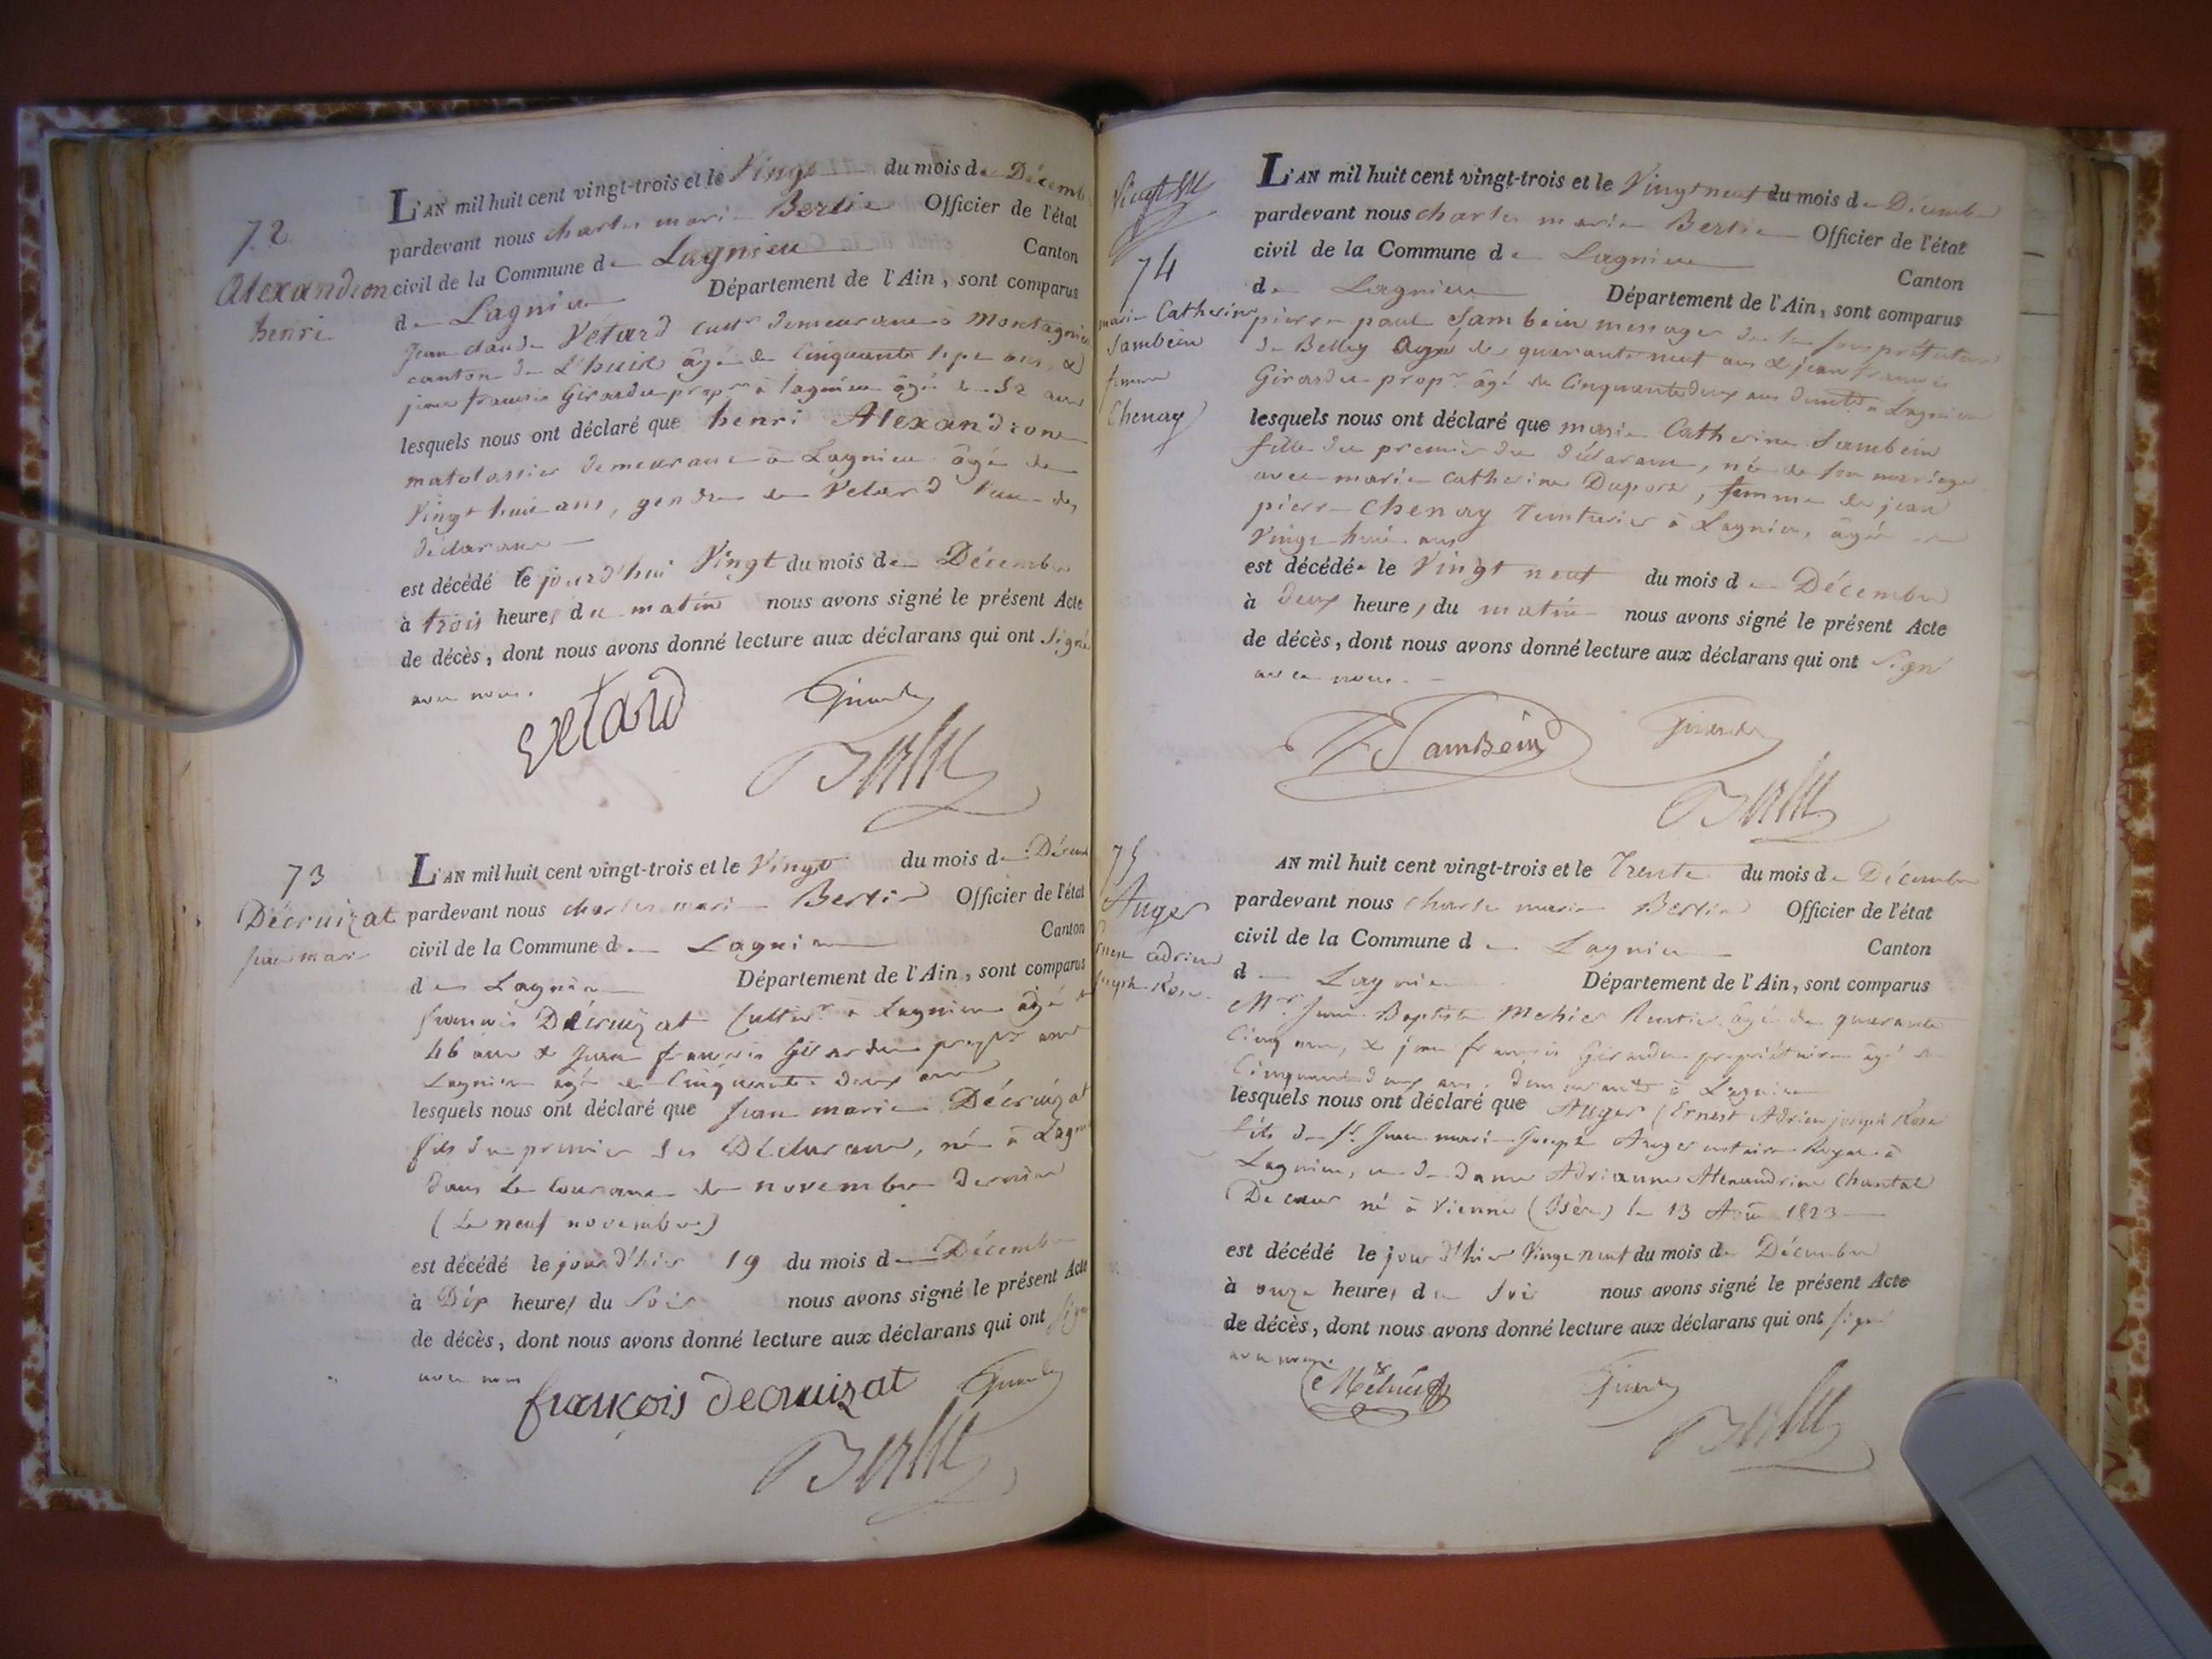 72
Alexandron
henri
L'AN mil huit cent vingt-trois et le Vingt du mois de Décemb
pardevant nous charles marie Berlie Officier de l'état
civil de la Commune de Lagnieu Canton
de Lagnieu Département de l'Ain, sont comparus
Jean claude Vetard cultr demeurant à Montagnieu
canton de L'huis âgé de Cinquante sept ans, &
jean francois Girardu propre à lagnieu âgé de 52 ans
lesquels nous ont déclaré que henri Alexandrone
matelassier demeurant à Lagnieu âgé de
Vingt huit ans, gendre de Vetard l'un des
déclarans
est décédé le jourd'hui Vingt du mois de Décembre
à trois heures du matin nous avons signé le présent Acte
de décès, dont nous avons donné lecture aux déclarans qui ont signé
avec nous.
Vetard
73
Décruizat
jean marie
L'AN mil huit cent vingt-trois et le Vingt du mois de Décem
pardevant nous charles marie Berlie Officier de l'état
civil de la Commune de Lagnieu Canton
de Lagnieu Département de l'Ain, sont comparus
francois Décruizat Cultivr à Lagnieu âgé de
46 ans & Jean francois Girardu propre
Lagnieu âgé de Cinquante deux ans
lesquels nous ont déclaré que Jean marie Décruizat
fils du premier des Déclarans, né à Lagni
dans le Courant de novembre dernier
(le neuf novembre)
est décédé le jour d'hier 19 du mois de Décembre
à Dix heures du Soir nous avons signé le présent Acte
de décès, dont nous avons donné lecture aux déclarans qui ont signé
avec nous
françois decruizat
74
marie Catherine
Sambein
femme
Chenay
L'AN mil huit cent vingt-trois et le Vingt neuf du mois de Décembre
pardevant nous charles marie Berlie Officier de l'état
civil de la Commune de Lagnieu Canton
de Lagnieu Département de l'Ain, sont comparus
pierre paul Sambein messager de la sous préfecture
de Belley âgé de quarante neuf ans & jean francois
Girardu propre âgé de Cinquante deux ans à Lagnieu
lesquels nous ont déclaré que marie Catherine Sambein
fille du premier des déclarans, née de son mariage
avec marie Catherine Duport, femme de jean
pierre Chenay Teinturier à Lagnieu, âgée de
Vingt huit ans
est décédée le Vingt neuf du mois de Décembre
à deux heures du matin nous avons signé le présent Acte
de décès, dont nous avons donné lecture aux déclarans qui ont signé
avec nous.
Sambein
75
Auger
Ernest Adrien
joseph Rose
AN mil huit cent vingt-trois et le Trente du mois de Décembre
pardevant nous Charle marie Berlie Officier de l'état
civil de la Commune de Lagnieu Canton
de Lagnieu Département de l'Ain, sont comparus
Mr. Jean Baptiste Mehier Rentier âgé de quarante
Cinq ans, & jean francois Girardu propriétaire âgé de
Cinquante deux ans, demeurants à Lagnieu
lesquels nous ont déclaré que Auger (Ernest Adrien joseph Rose
fils de Sr. Jean marie Joseph Auger notaire Royal à
Lagnieu, et de dame Adrianne Alexandrine Chantal
De cœur né à Vienne (Isère) le 13 Août 1823
est décédé le jour d'hier Vingt neuf du mois de Décembre
à onze heures du Soir nous avons signé le présent Acte
de décès, dont nous avons donné lecture aux déclarans qui ont signé
avec nous.
Méhier